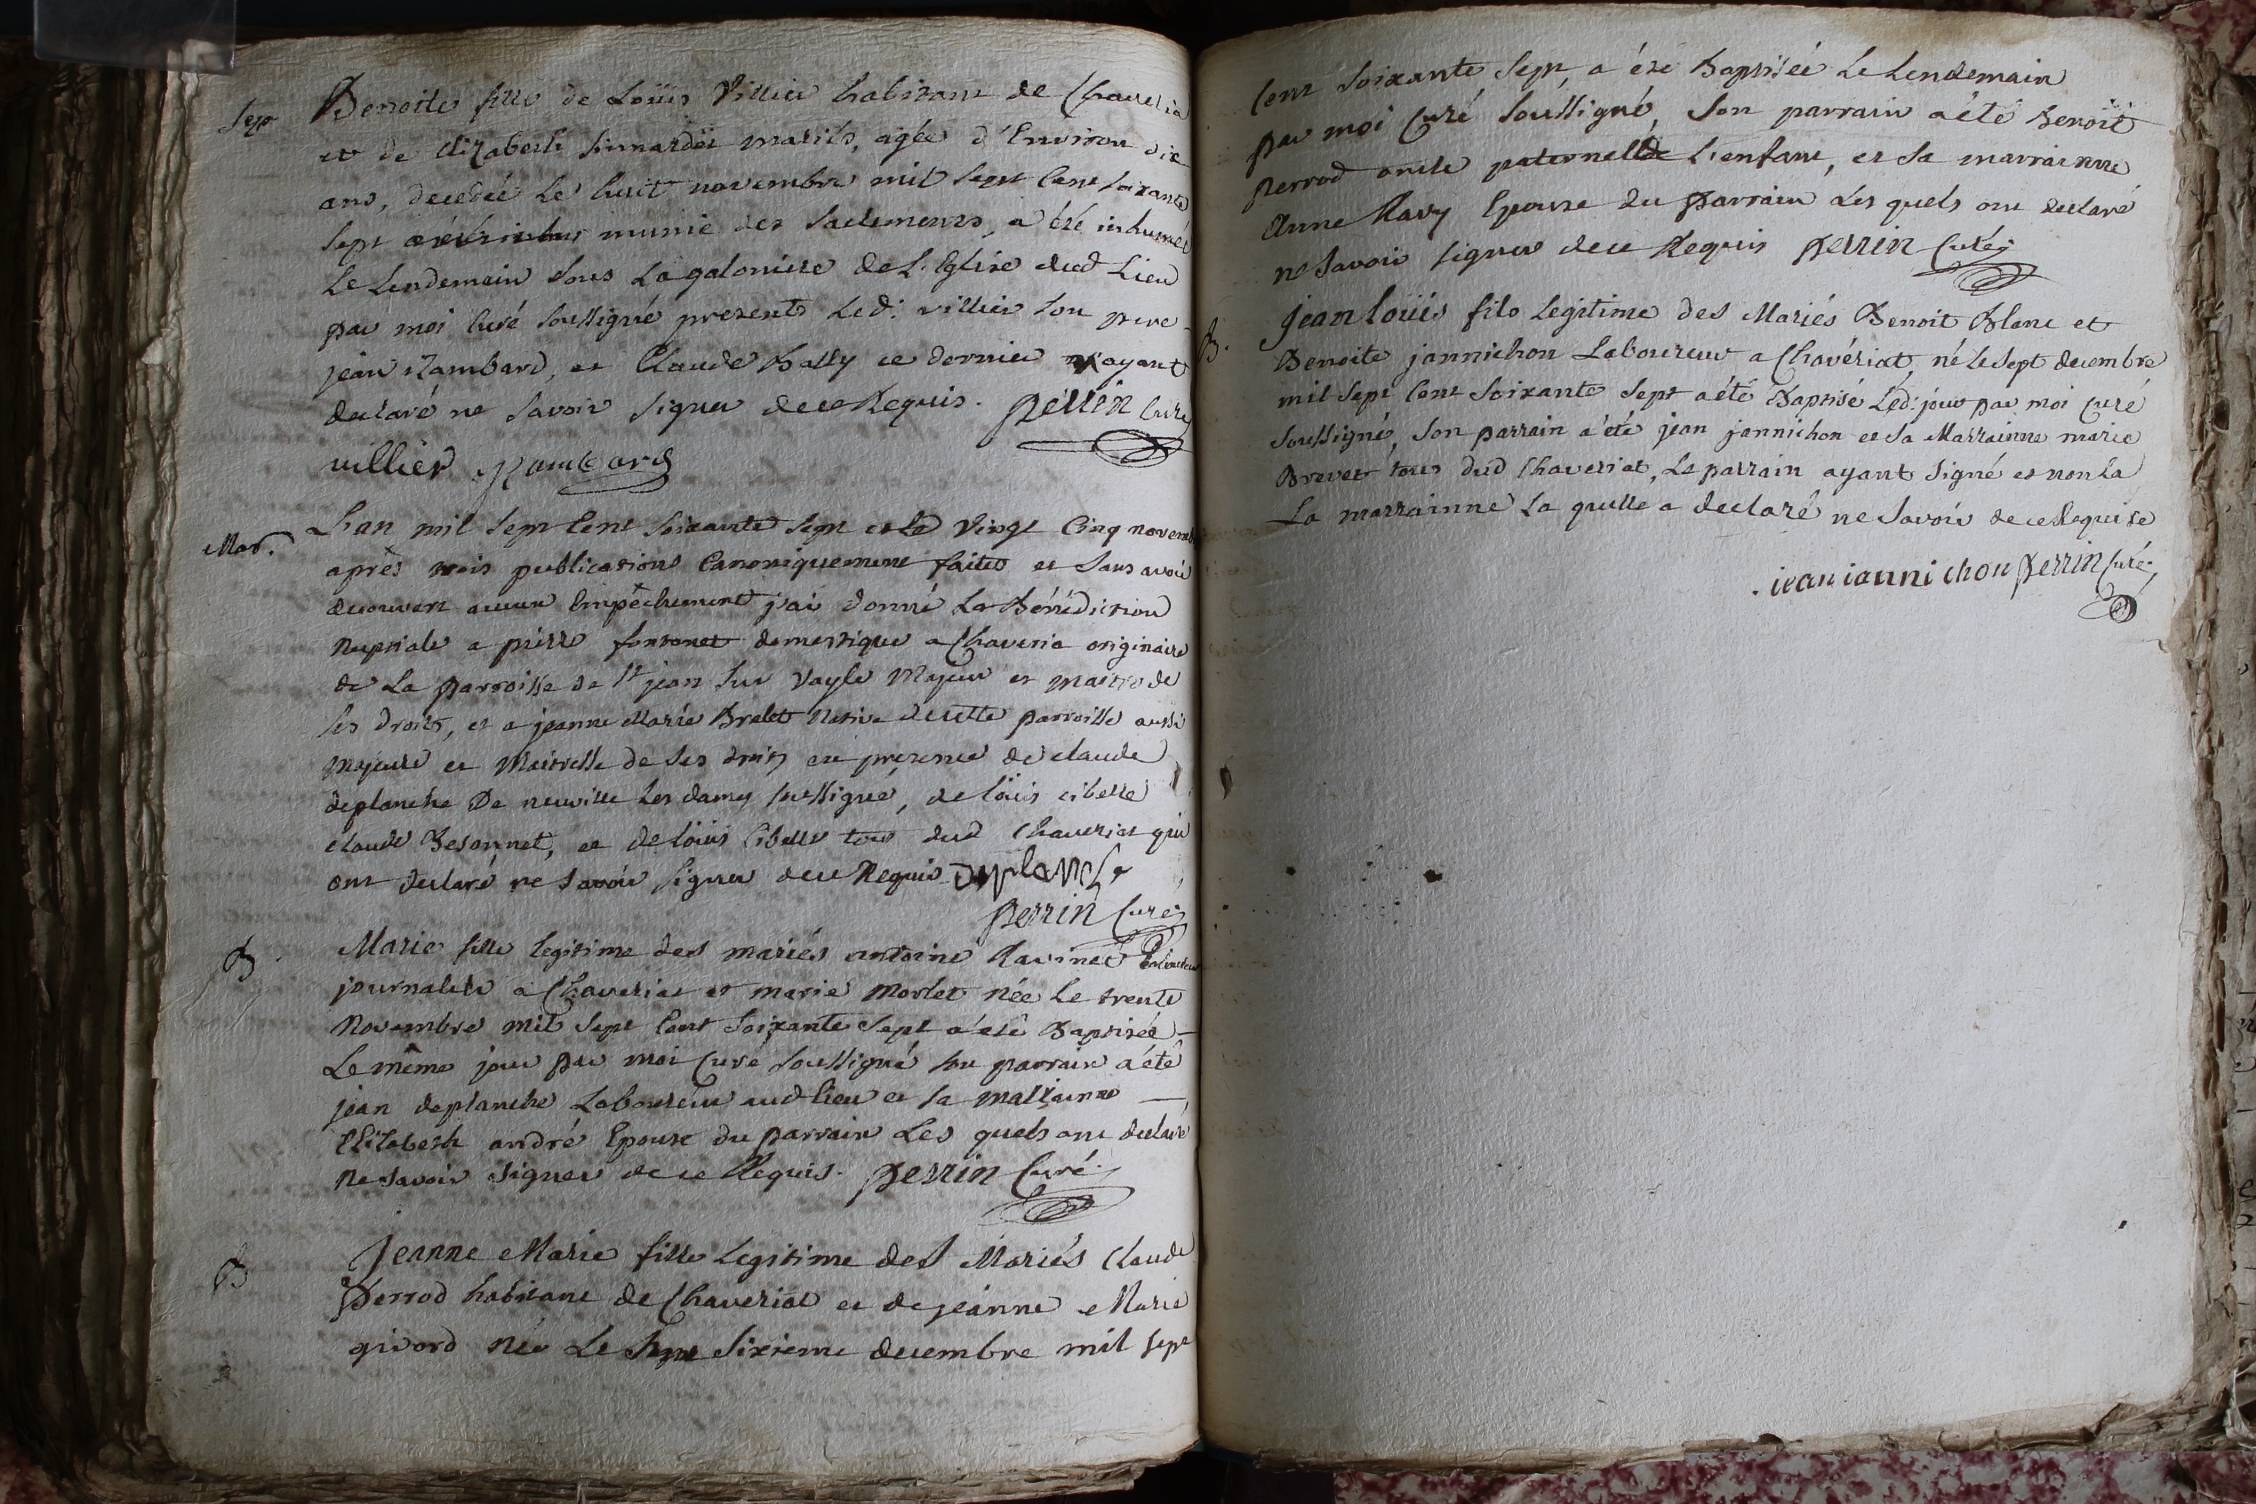 Sep.
Benoite fille de Loüis Villier habitant de Chaveria
et de Elizabeth mariés, agée d'Environ dix
ans, decedée Le huit novembre mil Sept Cent soixante
Sept munie des Sacremens, a été inhumée
Le Lendemain Sous La galoniere de L'Eglise dud Lieu
par moi Curé soussigné presents Led: villier son pere
jean Rambard, et Claude Bally ce dernier n'ayant
declaré ne Savoir Signer de ce Requis. perrin Curé
villier Rambard
Mar.
L'an mil Sept Cent soixante Sept et Le Vingt Cinq novemb
après trois publications Canoniquement faites et Sans avoir
decouvert aucun Empêchement j'ai donné La Bénédiction
Nuptiale a pierre fontanet domestique a Chaveria originaire
de La parroisse de St jean Sur Vayle Majeur et maitre de
ses droits, et a jeanne Marie Brelet Native de cette parroisse aussi
Majeure et Maitresse de Ses droits en presence de claude
deplanche De neuville Les dames soussigné, de loüis cibelle
claude Besonnet, et de loüis Cibelle tous dud Chaveriat qui
ont declaré ne Savoir signer de ce Requis Deplanche
perrin Curé
B.
Marie fille legitime des mariés antoine Ravinet
journalier a Chaveriat et marie Morlet née Le trente
Novembre mil Sept Cent Soixante Sept a été Baptisée
Le même jour par moi Curé Soussigné son parrain a été
jean deplanche Laboureur aud Lieu et sa marrainne
Elizabeth andré Epouse du parrain Les quels ont declaré
Ne Savoir Signer de ce Requis. perrin Curé.
B
Jeanne Marie fille legitime des Mariés Claude
Perrod habitant de Chaveriat et de jeanne Marie
givord née Le Sixieme decembre mil sept
Cent Soixante Sept, a été Baptisée Le Lendemain
par moi Curé Soussigné, Son parrain a été Benoit
perrod oncle paternel de L'enfant, et Sa marrainne
Anne Ravy Epouse du parrain Les quels ont declaré
ne Savoir signer de ce Requis perrin Curé
B.
jean loüis fils legitime des Mariés Benoit Blanc et
Benoite jannichon Laboureur a Chavériat, né le Sept decembre
mil Sept Cent Soixante Sept a été Baptisé Led: jour par moi Curé
Soussigné, Son parrain a été jean jannichon et Sa Marrainne marie
Brevet tous dud Chaveriat, Le parrain ayant Signé et non La
La marrainne La quelle a declaré ne Savoir de ce Requise
jean iannichon perrin Curé